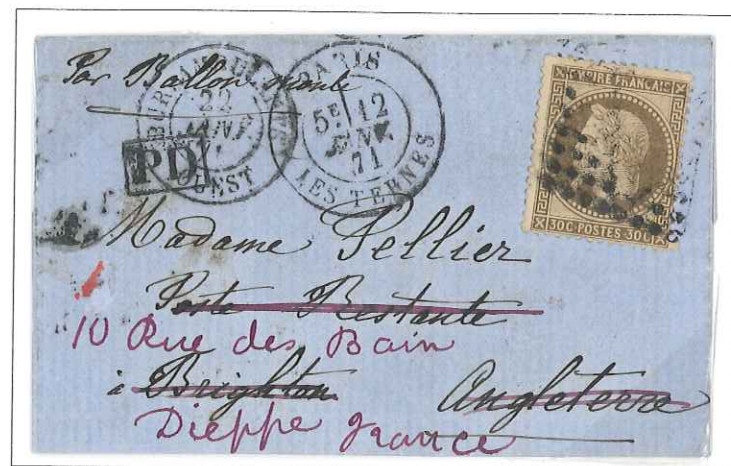 Par Ballon monté
BUREAU AMBULANT
22
JANV.
OUEST
PARIS
5E 12
JANV.
71
LES TERNES
PD
EMPIRE FRANÇAIS
30C POSTES 30C
Madame Pellier
Poste Restante
10 Rue des Bain
à Brighton Angleterre
Dieppe France